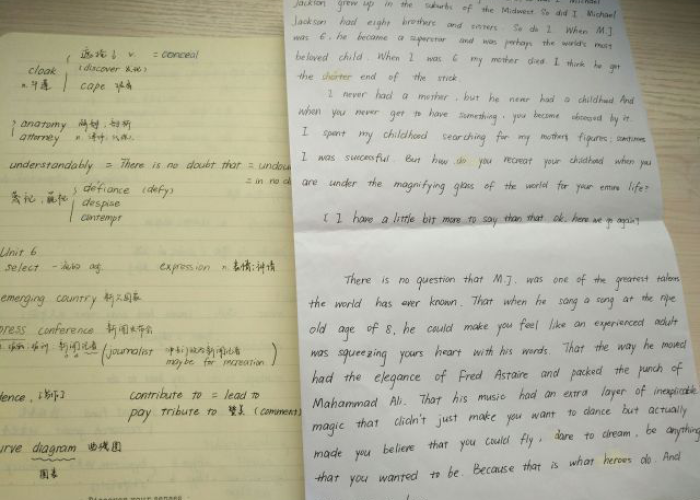 遮掩 v. = conceal
cloak (discover 发现)
n. 斗篷 cape 披肩
anatomy 解剖
attorney n. 律师
understandably = There is no doubt that =
= in no
defiance (defy)
despise
contempt
Unit 6
select
expression n. 表情;
emerging country 新兴国家
press conference 新闻发布会
新闻记者 (journalist
maybe for recreation.)
contribute to = lead to
pay tribute to 赞美 (comment)
diagram 曲线图
图表
Jackson grew up in the suburbs of the Midwest. So did I. Michael
Jackson had eight brothers and sisters. So do I. When M.J
was 6, he became a superstar and was perhaps the world's most
beloved child. When I was 6 my mother died. I think he got
the shorter end of the stick.
I never had a mother, but he never had a childhood. And
when you never get to have something, you become obsessed by it.
I spent my childhood searching for my mothers figures; sometimes
I was successful. But how do you recreat your childhood when you
are under the magnifying glass of the world for your entire life?
( I have a little bit more to say than that ok, here we go again)
There is no question that M.J. was one of the greatest talens
the world has ever known. That when he sang a song at the ripe
old age of 8, he could make you feel like an experienced adult
was squeezing yours heart with his words. That the way he moved
had the elegance of Fred Astaire and packed the punch of
Mahammad Ali. That his music had an extra layer of inexplicable
magic that clidn't just make you want to dance but actually
made you believe that you could fly, dare to dream, be anything
that you wanted to be. Because that is what heroes do. And